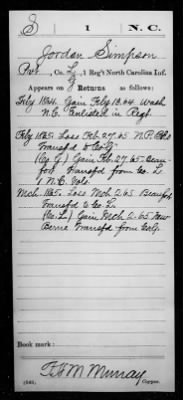 S 1 N.C.
Jordan Simpson
Pvt, Co. L, 1 Reg't North Carolina Inf.
Appears on Returns as follows:
Feby 1864. Gain Feby 18.64 Wash
N.C. Enlisted in Regt.
Feby 1865. Loss Feb. 27.65 N.C.
Transf'd to Co. G.
(Co. G) Gain Feb. 27.65 Beau-
fort Transf'd from Co. L
1 N.C. Vols.
Mch. 1865. Loss Mch 2.65 Beaufort
Transf'd to Co. L.
(Co. L) Gain Mch 2.65 New
Berne Transf'd from Co. G.
Book mark:
Murray
(546) Copyist.